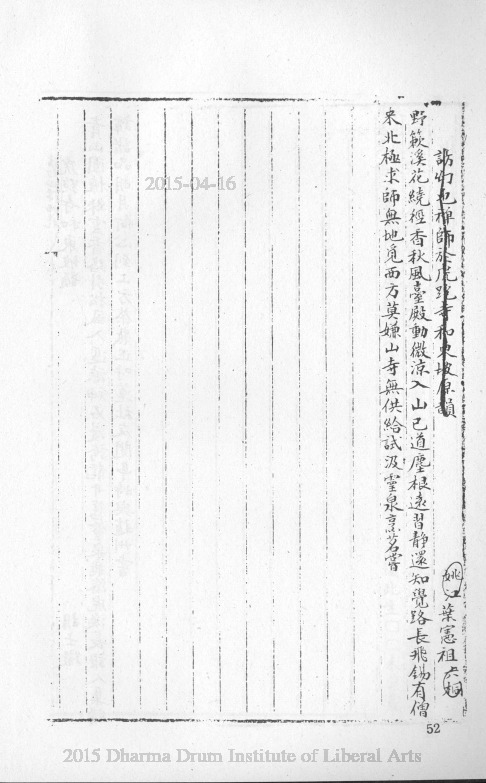 訪幻也禪師於虎跑寺和東坡原韻
姚江葉憲祖六桐
野蔌溪花繞徑香秋風臺殿動微涼入山已道塵根遠習靜還知覺路長飛錫有僧
來北極求師無地覓西方莫嫌山寺無供給試汲靈泉烹茗嘗
2015-04-16
52
2015 Dharma Drum Institute of Liberal Arts